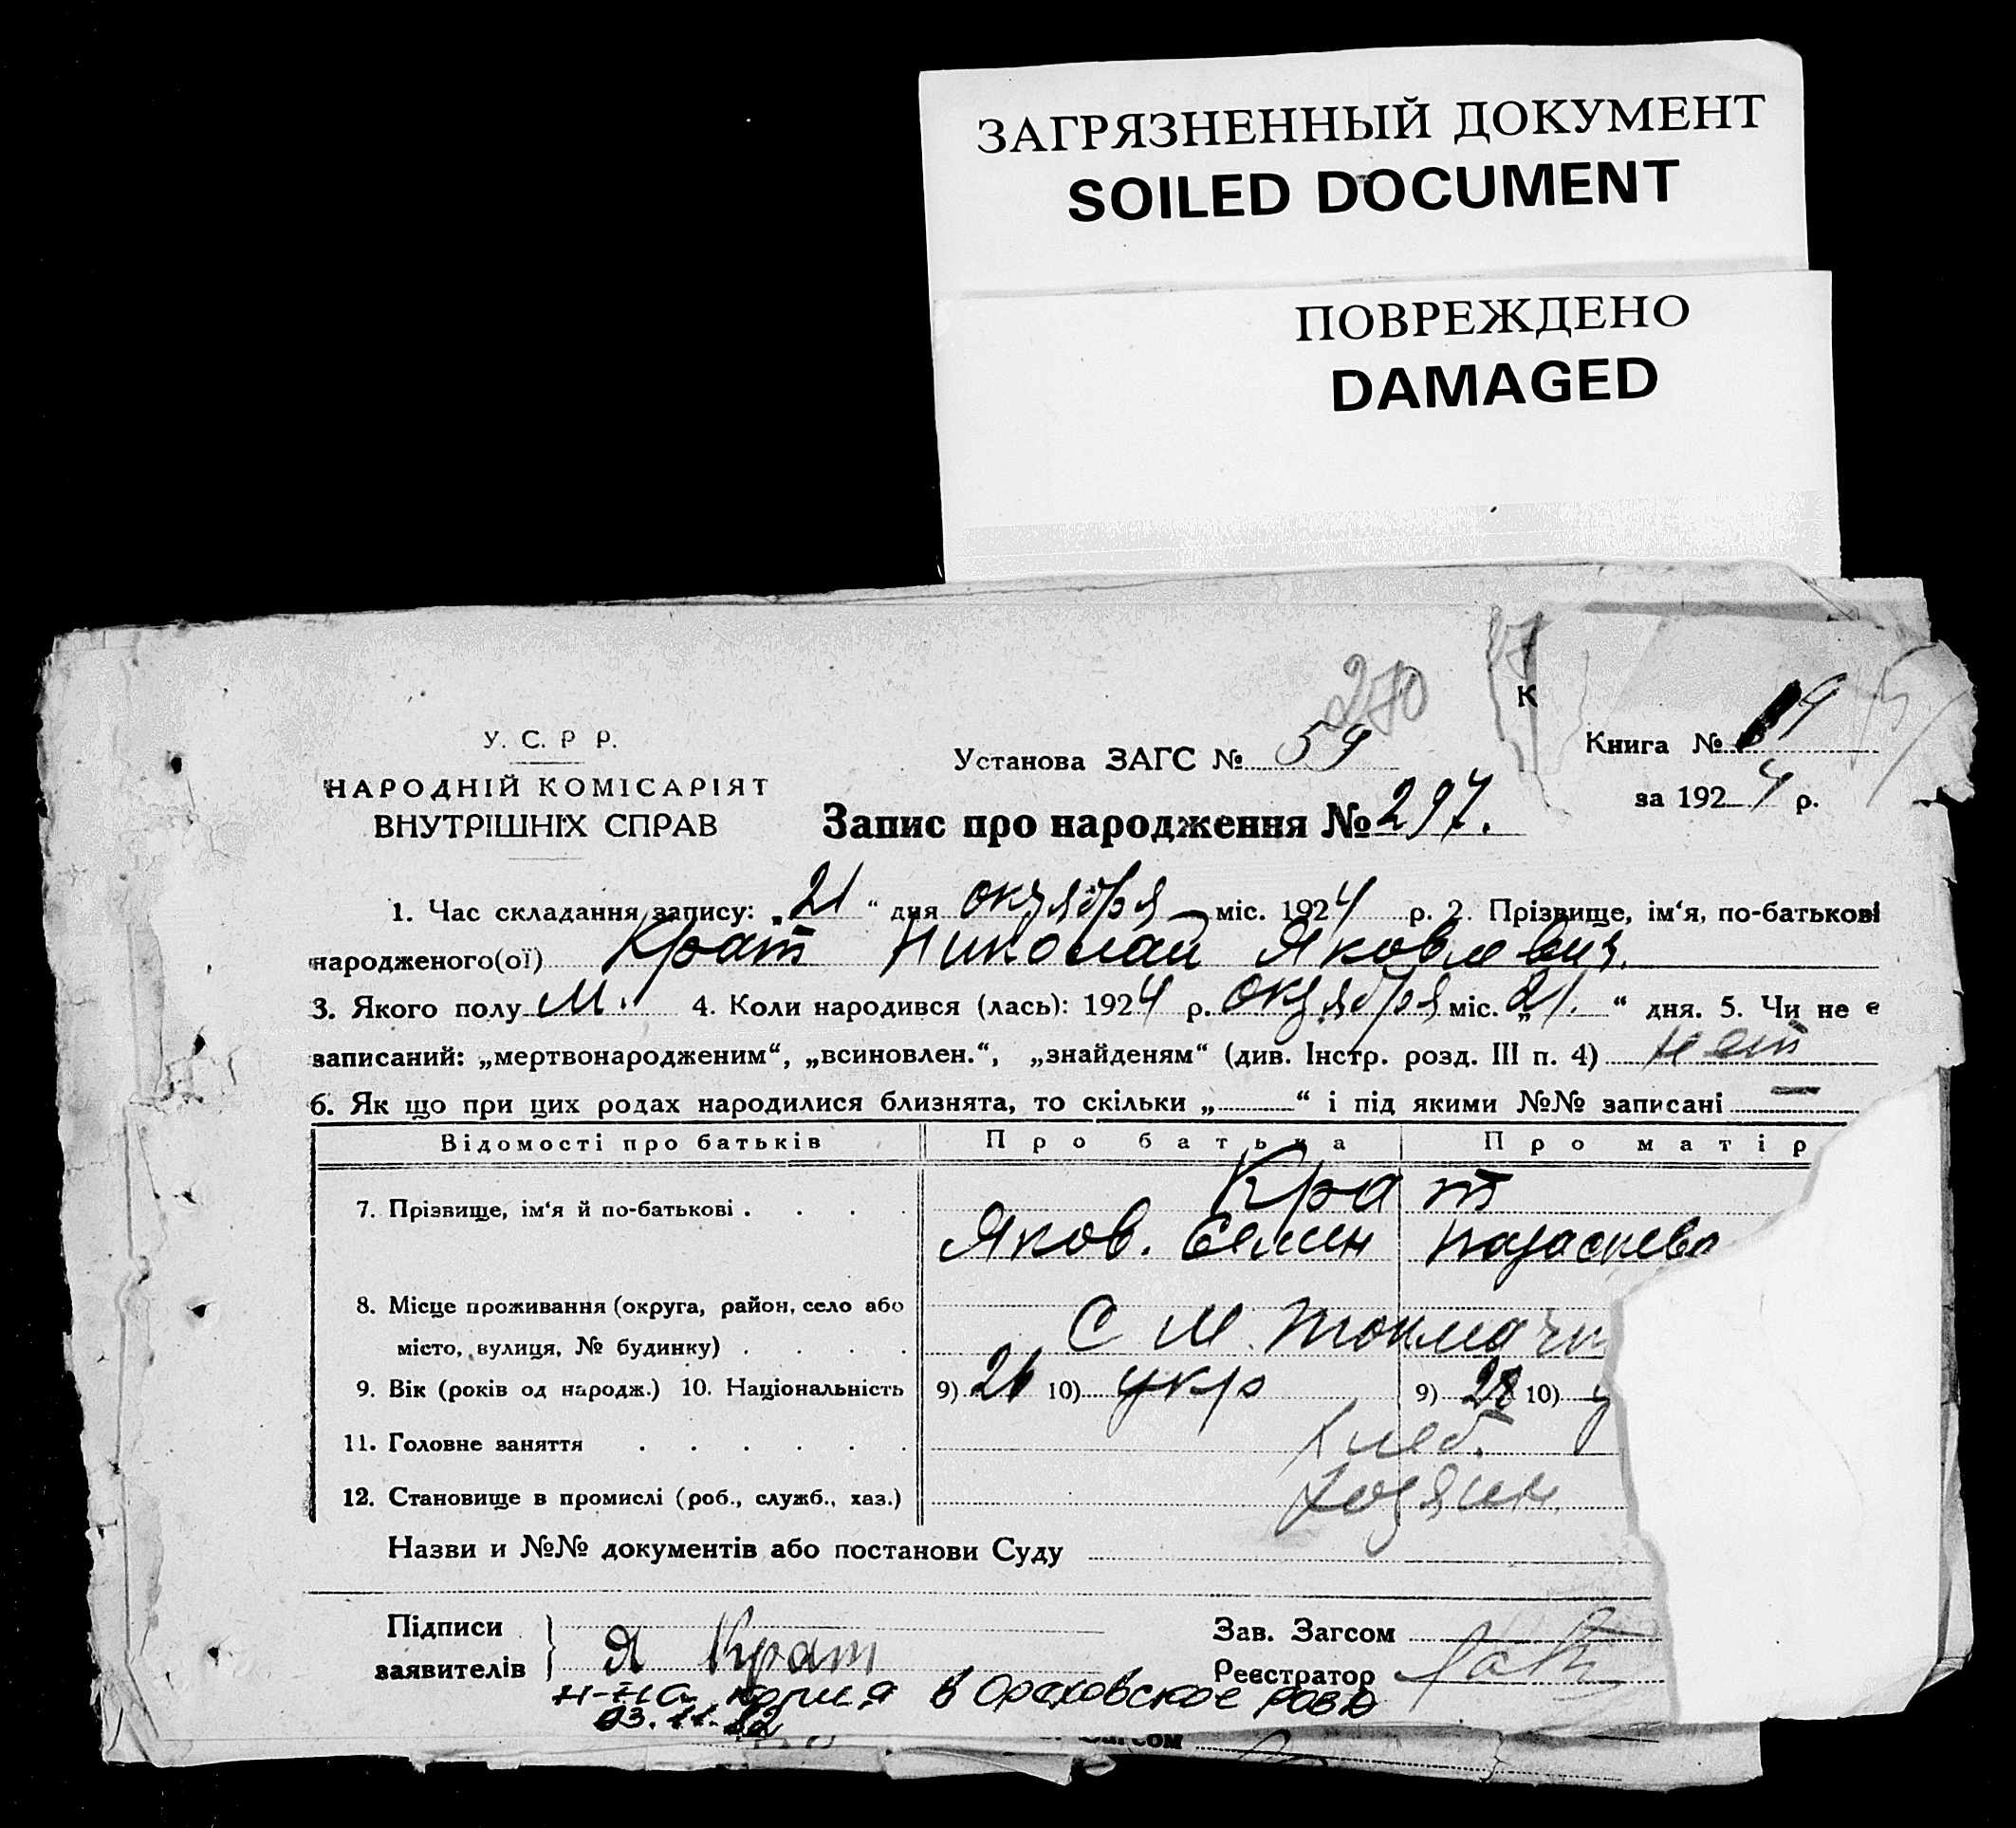 ЗАГРЯЗНЕННЫЙ ДОКУМЕНТ
SOILED DOCUMENT
ПОВРЕЖДЕНО
DAMAGED
270
К
У. С. Р Р.
Установа ЗАГС № 59
Книга № 19
НАРОДНІЙ КОМІСАРІЯТ
за 1924 р.
ВНУТРІШНІХ СПРАВ
Запис про народження № 297.
1. Час складання запису: „21“ дня октября міс. 1924 р. 2. Прізвище, ім‘я, по-батькові
народженого(ої) Крат Николай Яковлевич.
3. Якого полу м. 4. Коли народився (лась): 1924 р. октября міс. „21.“ дня. 5. Чи не е
записаний: „мертвонародженим“, „всиновлен.“, „знайденям“ (див. Інстр. розд. III п. 4) нет
6. Як що при цих родах народилися близнята, то скільки „ “ і під якими №№ записані —
Відомості про батьків Про батька Про матір
Крат
7. Прізвище, ім‘я й по-батькові . . . .
Яков. Семен
8. Місце проживання (округа, район, село або
С М. Токмач
місто, вулиця, № будинку) . . . .
9. Вік (років од народж.) 10. Національність 9) 26 10) укр 9) 28 10) у
11. Головне заняття . . . . . . Хлеб.
12. Становище в промислі (роб., служб., хаз.) хозяин
Назви и №№ документів або постанови Суду
Підписи
заявителів } Я Крат
Зав. Загсом
Реєстратор
н-на копия в Ореховское РОВД
03.11.82
Загсом